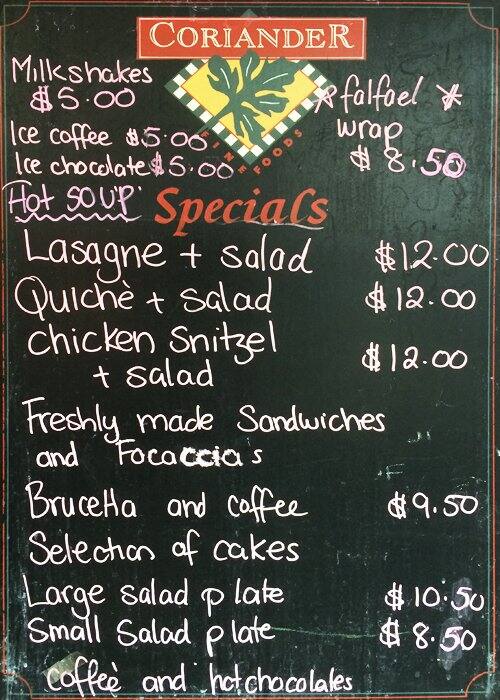 CORIANDER
FINE FOODS
Milkshakes
$5.00
Ice coffee $5.00
Ice chocolate $5.00
Hot SOUP
* falfael *
wrap
$8.50
Specials
Lasagne + salad $12.00
Quichè + salad $12.00
Chicken Snitzel
+ salad $12.00
Freshly made Sandwiches
and Focaccias
Brucetta and coffee $9.50
Selection of cakes
Large salad plate $10.50
Small Salad plate $8.50
Coffeè and hotchocolates